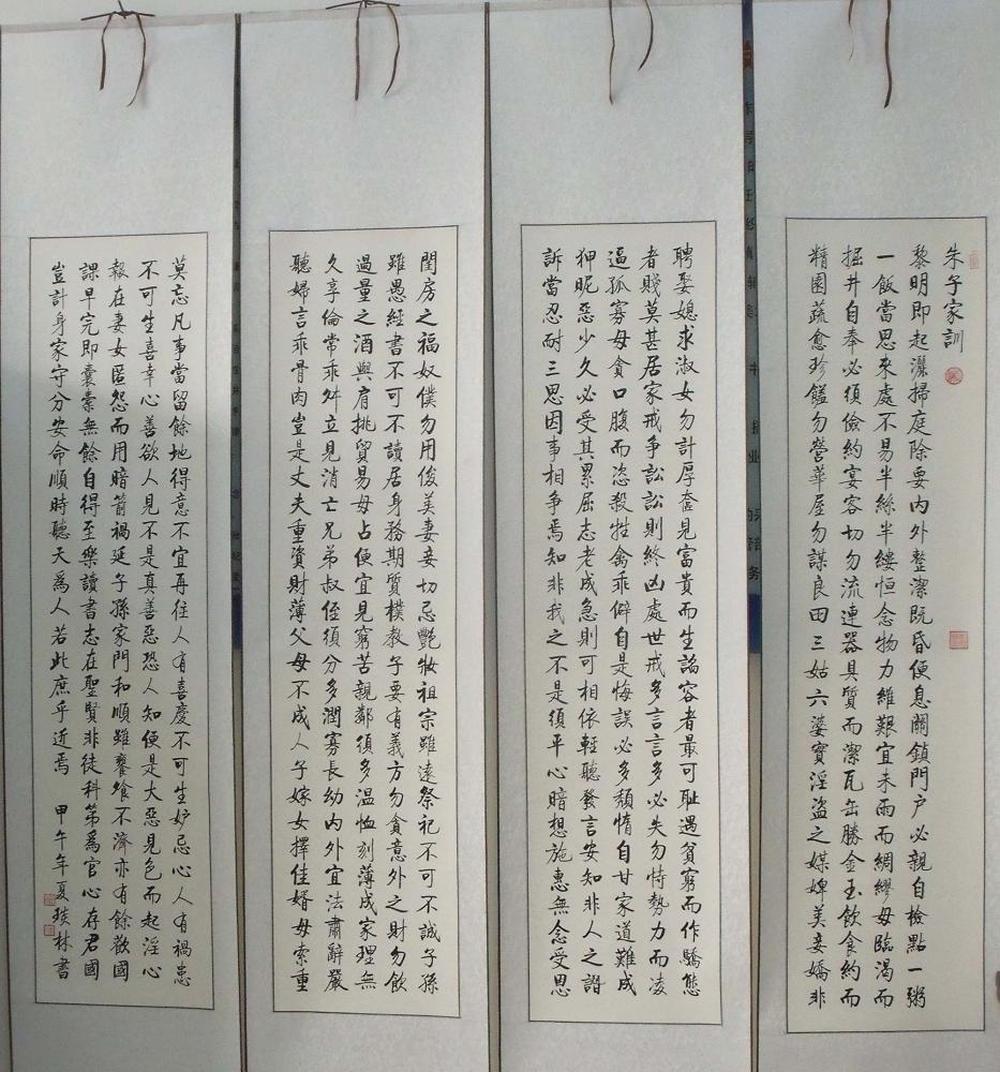 朱子家訓
黎明即起灑掃庭除要内外整潔既昏便息關鎖門户必親自檢點一粥
一飯當思來處不易半絲半縷恒念物力維艱宜未雨而綢繆毋臨渴而
掘井自奉必須儉約宴客切勿流連器具質而潔瓦缶勝金玉飲食約而
精園蔬愈珍饈勿營華屋勿謀良田三姑六婆實淫盗之媒婢美妾嬌非
聘娶媳求淑女勿計厚奩見富貴而生諂容者最可耻遇貧窮而作驕態
者賤莫甚居家戒争訟訟則終凶處世戒多言言多必失勿恃勢力而凌
逼孤寡毋貪口腹而恣殺牲禽乖僻自是悔誤必多頹惰自甘家道難成
狎昵惡少久必受其累屈志老成急則可相依輕聽發言安知非人之譖
訴當忍耐三思因事相争焉知非我之不是須平心暗想施惠無念受恩
閨房之福奴僕勿用俊美妻妾切忌艷妝祖宗雖遠祭祀不可不誠子孫
雖愚經書不可不讀居身務期質樸教子要有義方勿貪意外之財勿飲
過量之酒與肩挑貿易毋占便宜見窮苦親鄰須多温恤刻薄成家理無
久享倫常乖舛立見消亡兄弟叔侄須分多潤寡長幼内外宜法肅辭嚴
聽婦言乖骨肉豈是丈夫重資財薄父母不成人子嫁女擇佳婿毋索重
莫忘凡事當留餘地得意不宜再往人有喜慶不可生妒忌心人有禍患
不可生喜幸心善欲人見不是真善惡恐人知便是大惡見色而起淫心
報在妻女匿怨而用暗箭禍延子孫家門和順雖饔飧不濟亦有餘歡國
課早完即囊橐無餘自得至樂讀書志在聖賢非徒科第爲官心存君國
豈計身家守分安命順時聽天爲人若此庶乎近焉 甲午年夏琰林書